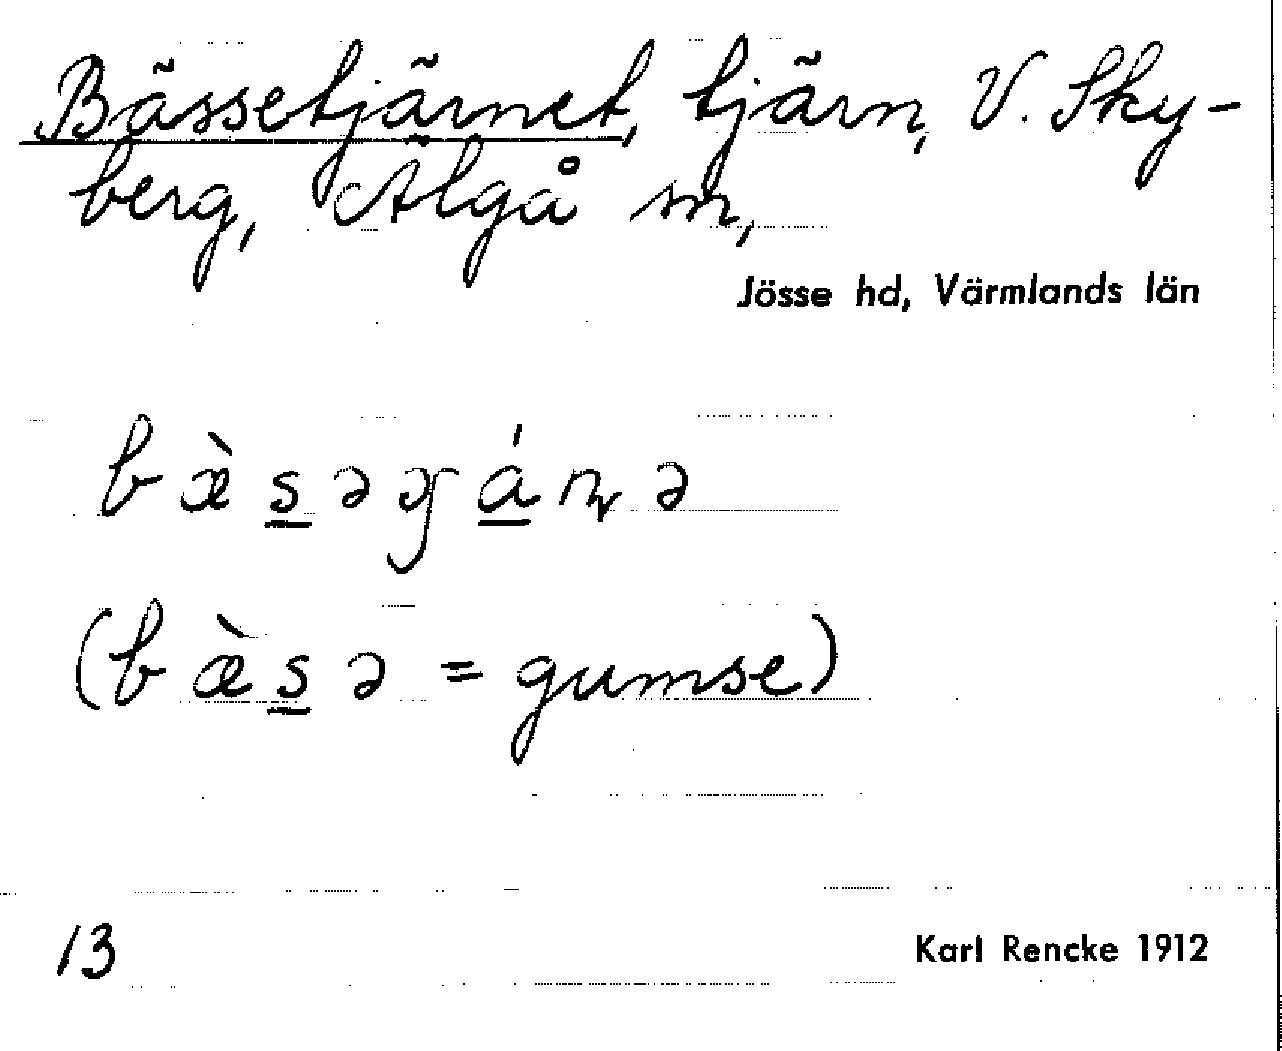 Bässetjärnet, tjärn, V. Sky-
berg, Älgå sn,
Jösse hd, Värmlands län
bæ̀s̲əɟá̲ɳə
(bæ̀s̲ə = gumse)
13
Karl Rencke 1912